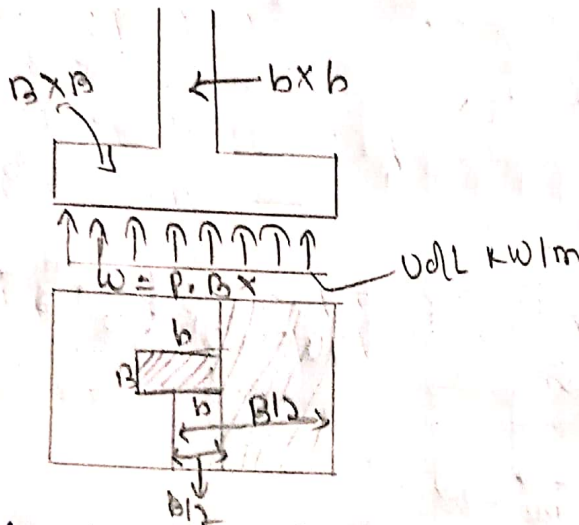 B×B
b×b
W = P. B×
Udl kW/m
b
B
b
B/2
B/2